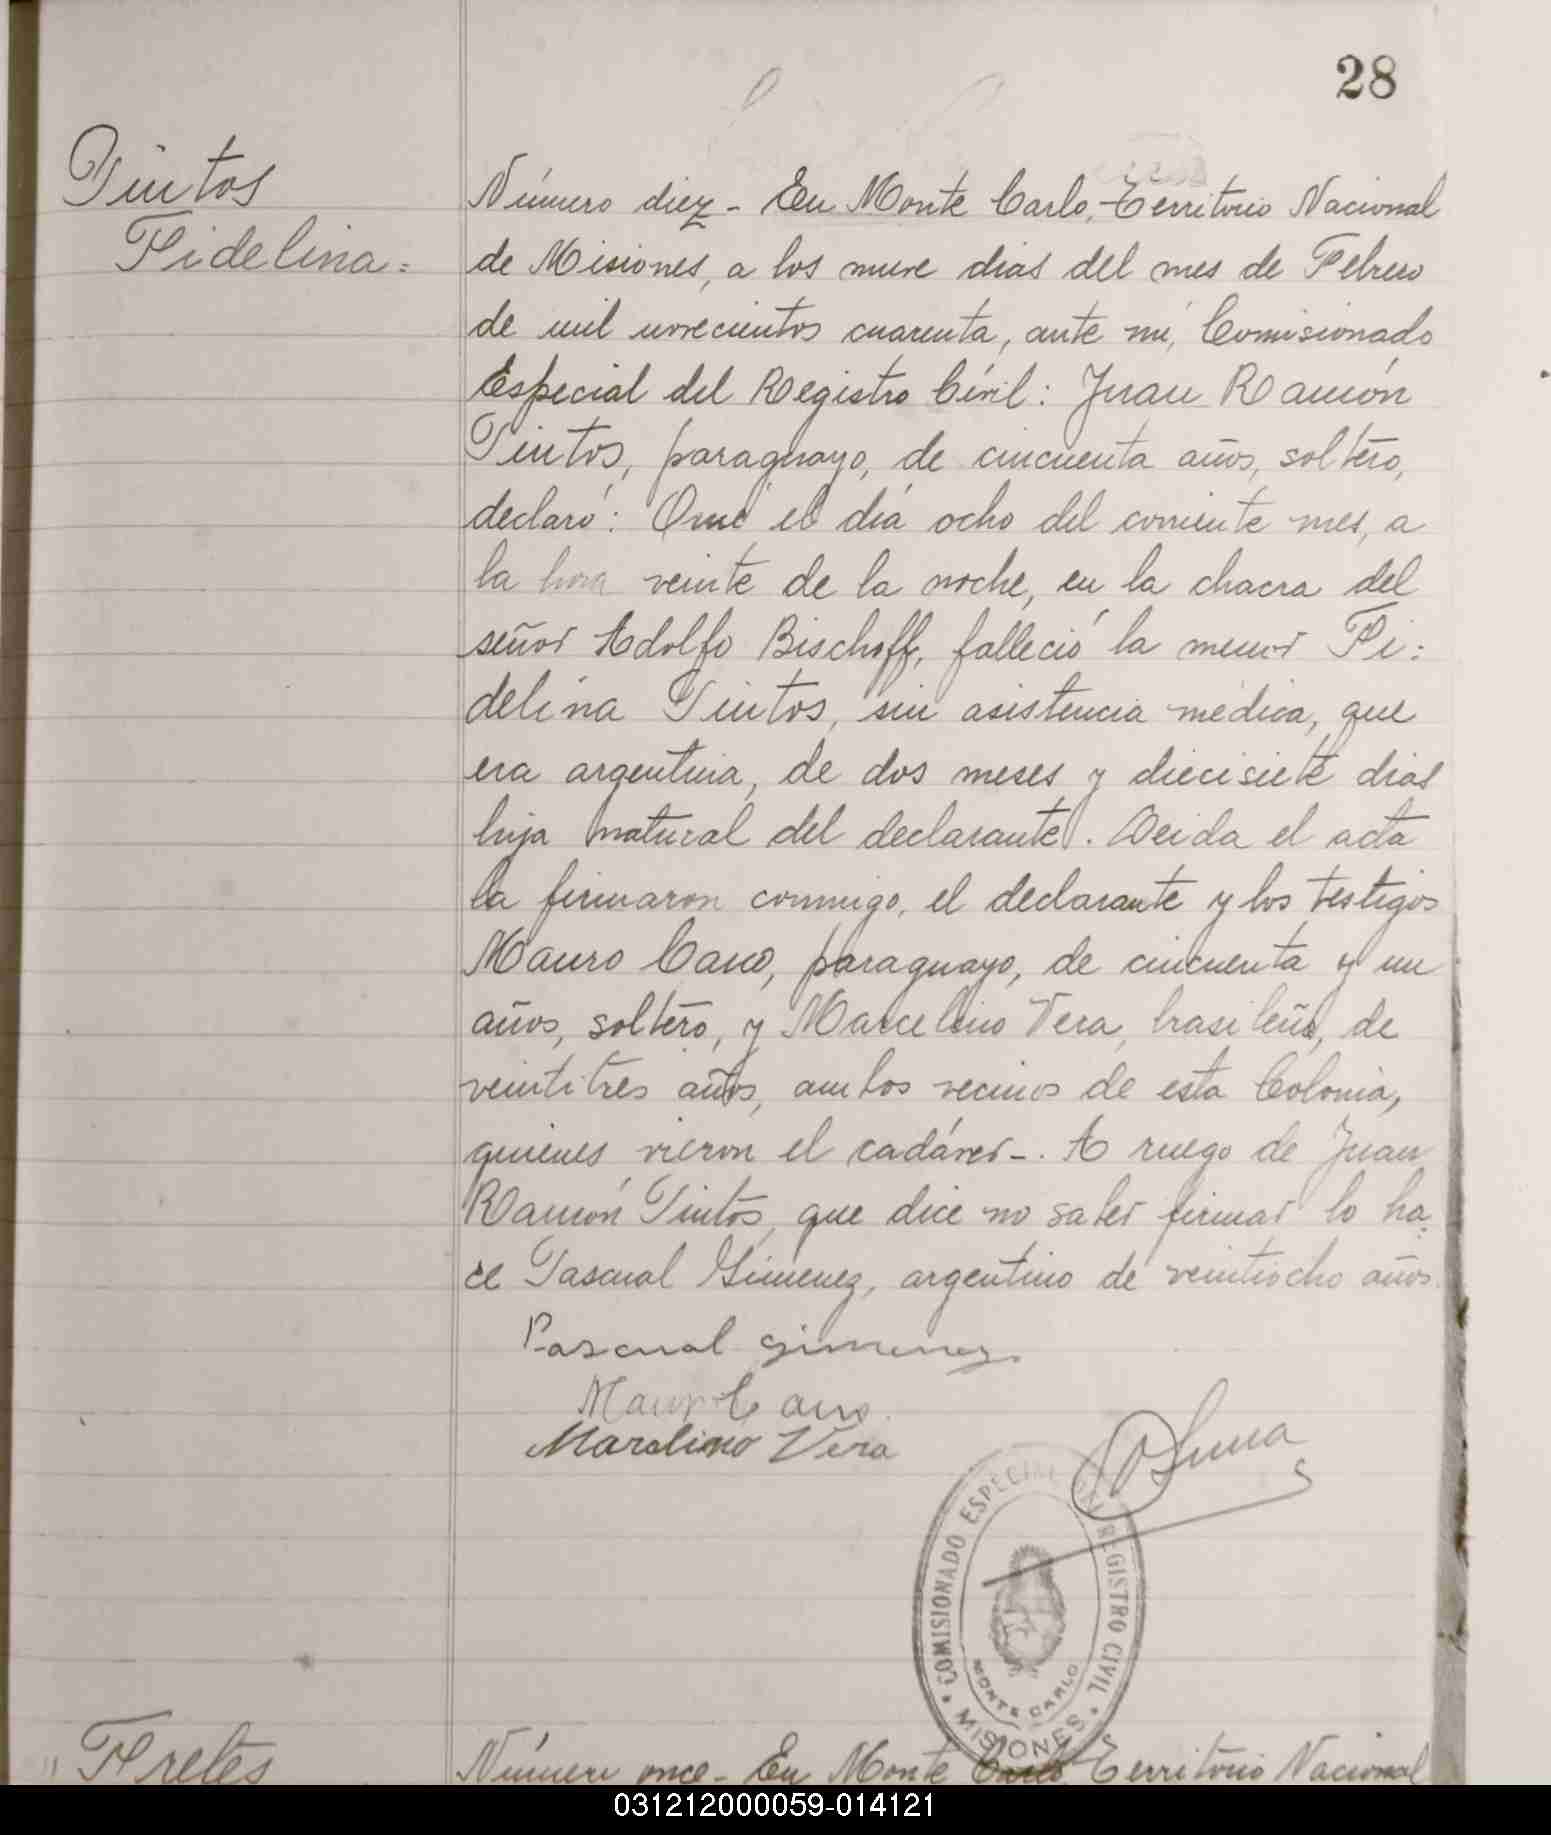 28
Pintos
Fidelina=
Número diez - En Monte Carlo, Territorio Nacional
de Misiones, a los nueve dias del mes de Febrero
de mil novecientos cuarenta, ante mi, Comisionado
Especial del Registro Civil: Juan Ramón
Pintos, paraguayo, de cincuenta años, soltero,
declaró: Que el día ocho del corriente mes, a
la hora veinte de la noche, en la chacra del
señor Adolfo Bischoff, falleció la menor Fi=
delina Pintos, sin asistencia médica, que
era argentina, de dos meses y diecisiete dias
hija natural del declarante. Leida el acta
la firmaron conmigo, el declarante y los testigos
Mauro Cano, paraguayo, de cincuenta y un
años, soltero, y Marcelino Vera, brasileño, de
veintitres años, ambos vecinos de esta Colonia,
quienes vieron el cadáver-. A ruego de Juan
Ramón Pintos, que dice no saber firmar lo ha=
ce Pascual Gimenez, argentino de veintiocho años.
Pascual Gimenez
Mauro Cano
Marcelino Vera
Luna
COMISIONADO ESPECIAL DEL REGISTRO CIVIL
MONTE CARLO
MISIONES
" Fretes
Número once - En Monte Carlo Territorio Nacional
031212000059-014121